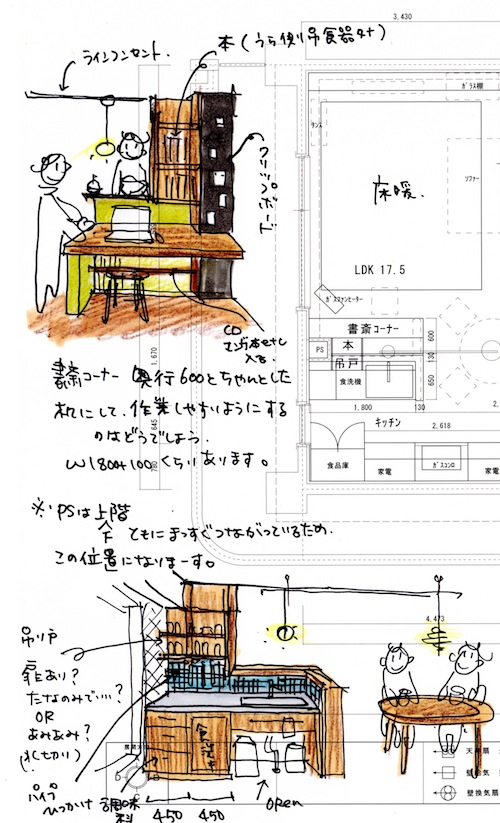 ラインコンセント.
本(うら側吊食器タナ)
クリップボード
CD
マンガ本など
入る.
書斎コーナー 奥行600とちゃんとした
机にして、作業しやすいようにする
のはどうでしょう.
W1800+100くらいあります。
※PSは上階
下 ともにまっすぐつながっているため、
この位置になりまーす。
3,430
ガラス棚
タンス
床暖.
ソファー
LDK 17.5
ガスファンヒーター
書斎コーナー
PS
本
吊戸
食洗機
600
130
650
1,800
130
キッチン
2,618
食品庫
家電
ガスコンロ
家電
1,670
645
780
吊り戸
扉あり?
たなのみで…?
OR
あみあみ?
パイプ
ひっかけ
調味
料
450
450
open
食洗
4,473
天井扇
壁給気
壁換気扇